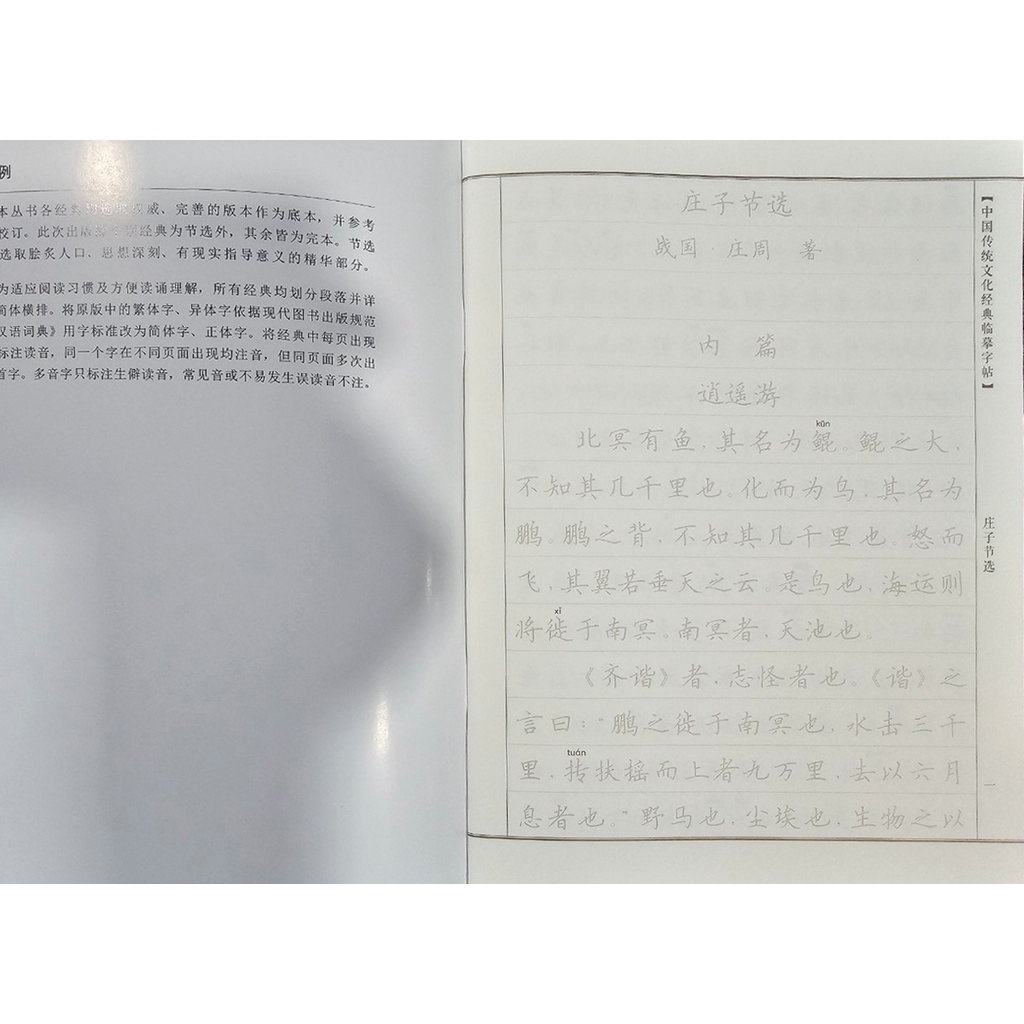 例
本丛书各经典 权威、完善的版本作为底本，并参考
校订。此次出版 经典为节选外，其余皆为完本。节选
选取脍炙人口、思想深刻、有现实指导意义的精华部分。
为适应阅读习惯及方便读诵理解，所有经典均划分段落并详
简体横排。将原版中的繁体字、异体字依据现代图书出版规范
汉语词典》用字标准改为简体字、正体字。将经典中每页出现
标注读音，同一个字在不同页面出现均注音，但同页面多次出
首字。多音字只标注生僻读音，常见音或不易发生误读音不注。
庄子节选
战国·庄周 著
内 篇
逍遥游
kūn
北冥有鱼，其名为鲲。鲲之大，
不知其几千里也。化而为鸟，其名为
鹏。鹏之背，不知其几千里也。怒而
飞，其翼若垂天之云。是鸟也，海运则
xǐ
将徙于南冥。南冥者，天池也。
《齐谐》者，志怪者也。《谐》之
言曰：“鹏之徙于南冥也，水击三千
tuán
里，抟扶摇而上者九万里，去以六月
息者也。”野马也，尘埃也，生物之以
【中国传统文化经典临摹字帖】
庄子节选
一